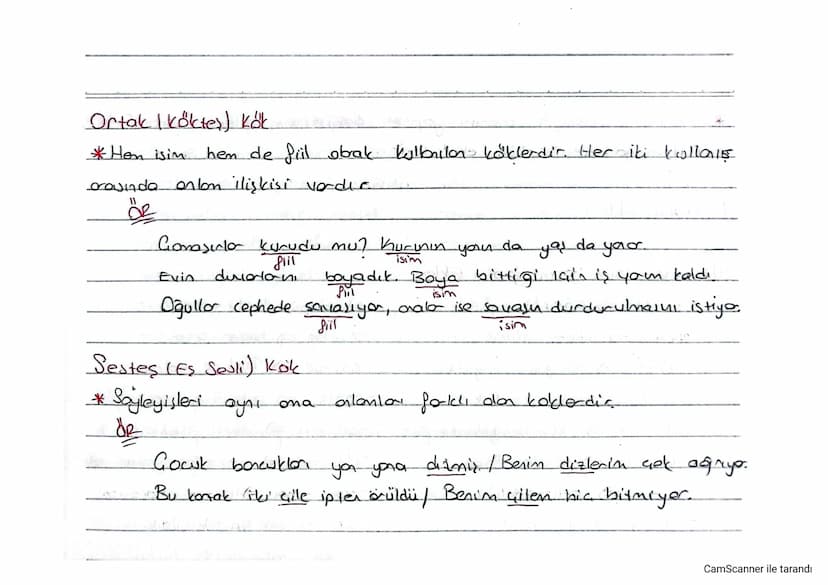 Ortak (Kökteş) Kök
* Hem isim hem de fiil olarak kullanılan köklerdir. Her iki kullanış
arasında anlam ilişkisi vardır.
ÖR
Çamaşırlar kurudu mu? Kurunın yanın da yaş da yanar.
fiil isim
Evin duvarlarını boyadık. Boya bittiği için iş yarım kaldı.
fiil isim
Oğullar cephede savaşıyor, analar ise savaşın durdurulmasını istiyor.
fiil isim
Sesteş (Eş Sesli) Kök
* Söyleyişleri aynı ama anlamları farklı olan köklerdir.
ÖR
Çocuk boncukları yan yana dizmiş / Benim dizlerim çok ağrıyor.
Bu kazak iki çile ipten örüldü / Benim çilem hiç bitmiyor.
CamScanner ile tarandı